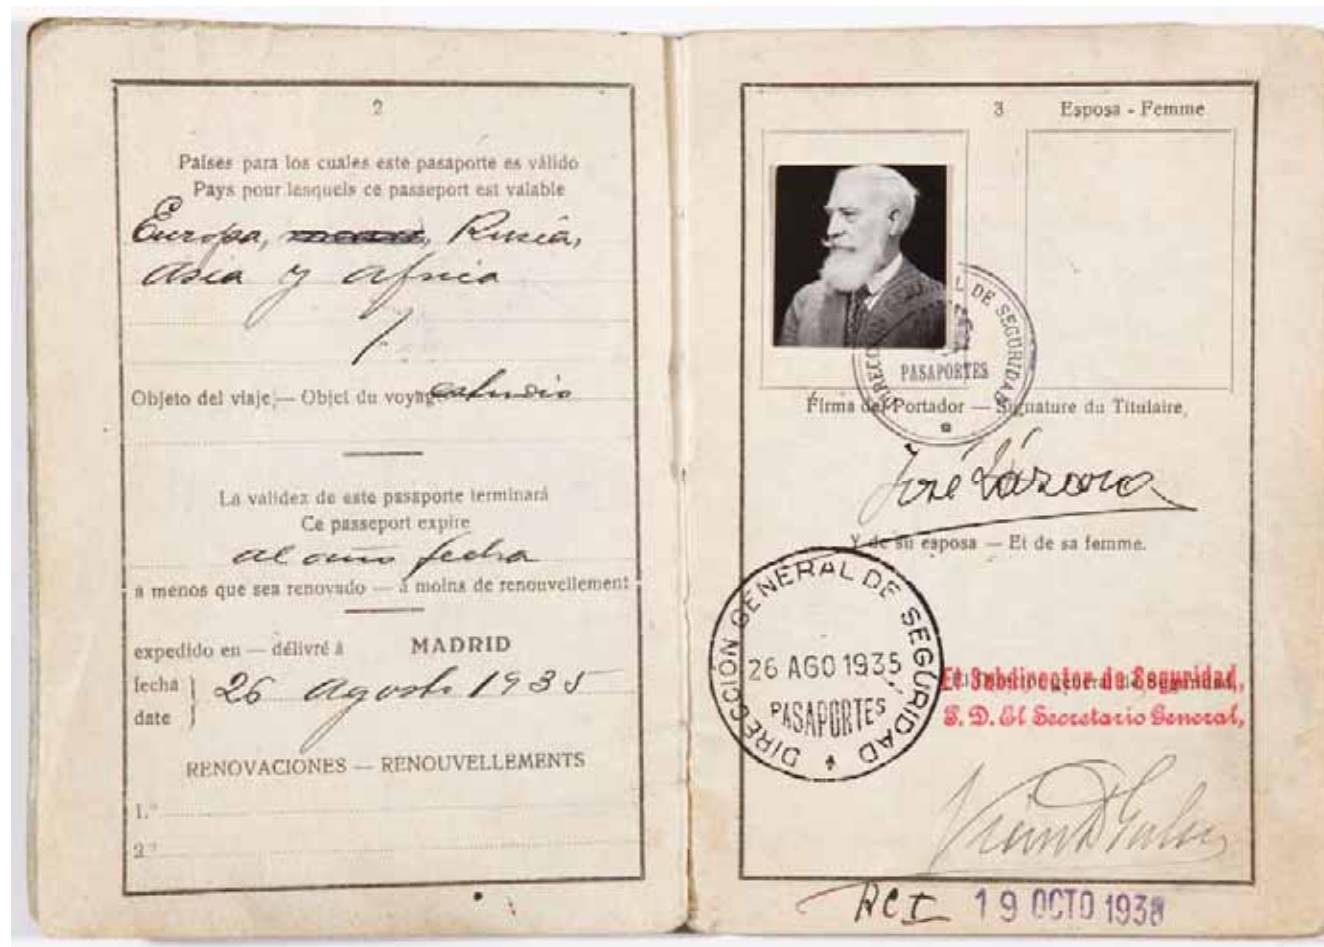 2
Países para los cuales este pasaporte es válido
Pays pour lesquels ce passeport est valable
Europa, Rusia,
Asia y Africa
Objeto del viaje, — Objet du voyage estudio
La validez de este pasaporte terminará
Ce passeport expire
al año fecha
a menos que sea renovado — à moins de renouvellement
expedido en — délivré à MADRID
fecha
date
26 Agosto 1935
RENOVACIONES — RENOUVELLEMENTS
1.º
2.º
3 Esposa - Femme
DIRECCIÓN GENERAL DE SEGURIDAD
PASAPORTES
Firma del Portador — Signature du Titulaire,
José Lázaro
Y de su esposa — Et de sa femme.
DIRECCIÓN GENERAL DE SEGURIDAD
26 AGO 1935
PASAPORTES
El Subdirector de Seguridad,
S. D. El Secretario General,
19 OCTO 1938